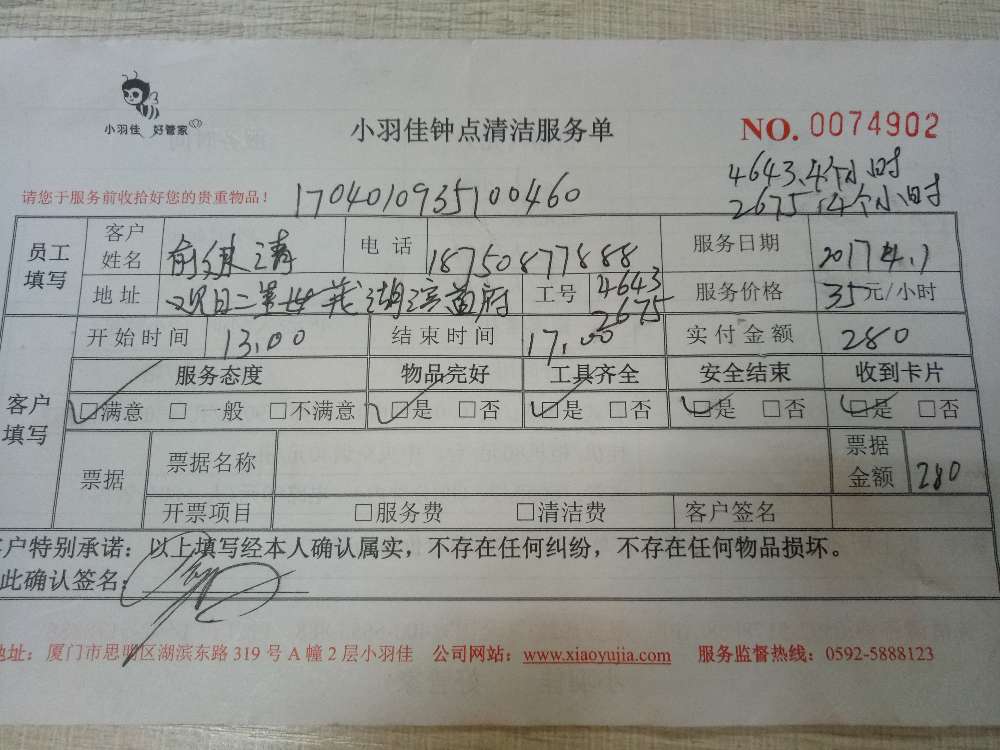 小羽佳 好管家
小羽佳钟点清洁服务单
NO. 0074902
4643.4个小时
2675.4个小时
请您于服务前收拾好您的贵重物品！
1704010935100460
员工填写 客户姓名 俞 清 电话 18750877888 服务日期 2017.4.1
地址 观日二 湖滨首府 工号 4643 2675 服务价格 35元/小时
客户填写 开始时间 13.00 结束时间 17.00 实付金额 280
服务态度 物品完好 工具齐全 安全结束 收到卡片
☑满意 □一般 □不满意 ☑是 □否 ☑是 □否 ☑是 □否 ☑是 □否
票据 票据名称 票据金额 280
开票项目 □服务费 □清洁费 客户签名
户特别承诺：以上填写经本人确认属实，不存在任何纠纷，不存在任何物品损坏。
此确认签名：
地址：厦门市思明区湖滨东路 319 号 A 幢 2 层小羽佳 公司网站：www.xiaoyujia.com 服务监督热线：0592-5888123